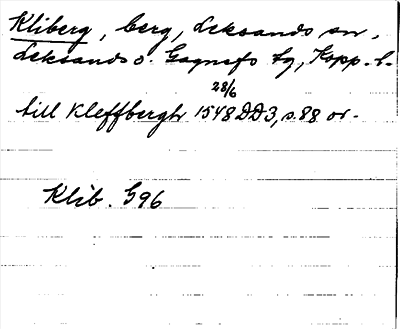 Kliberg, berg, Leksands sn,
Leksands o. Gagnefs tg, Kopp. l.
28/6
till Kleffbergh 1548 DD3, s. 88 or.
Klib. G96